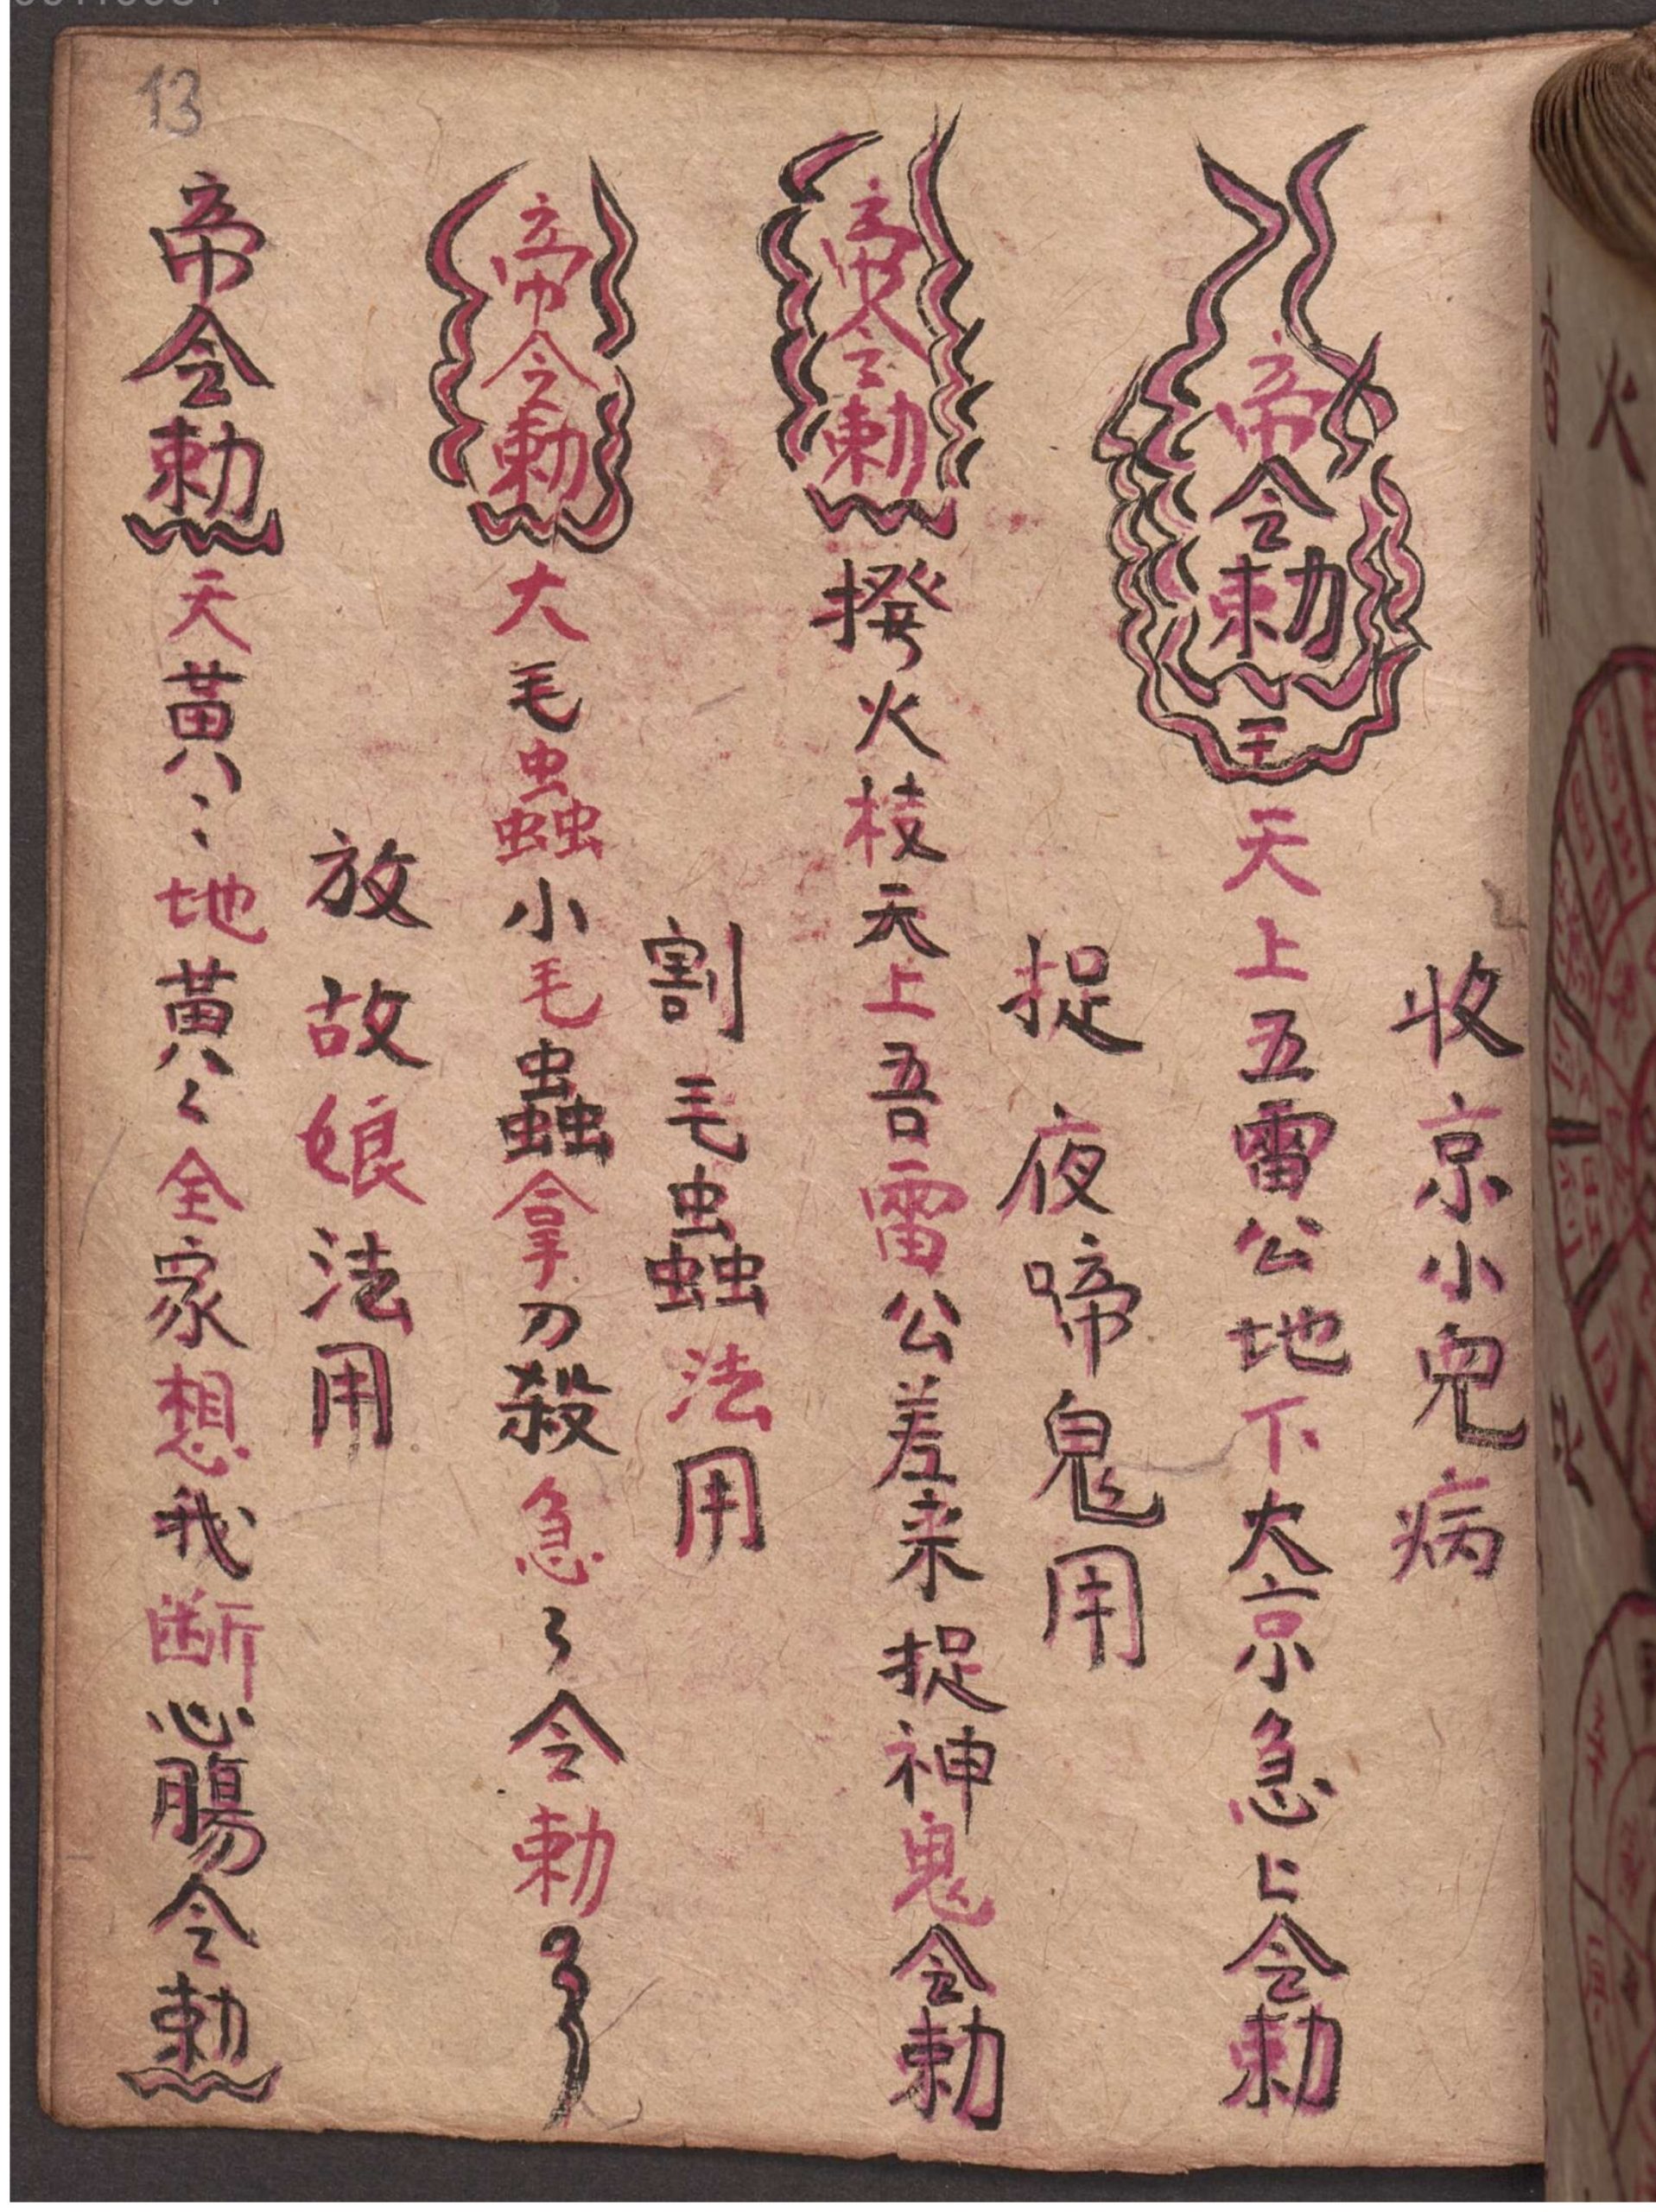 13
收京小鬼病
帝令勅王天上五雷公地下大京急上令勅
捉夜啼鬼用
帝令勅撥火枝天上吾雷公差来捉神鬼令勅
割毛蟲法用
帝令勅大毛蟲小毛蟲拿刀殺急々令勅
放故娘法用
帝令勅天黃〻地黃々全家想我断心腸令勅